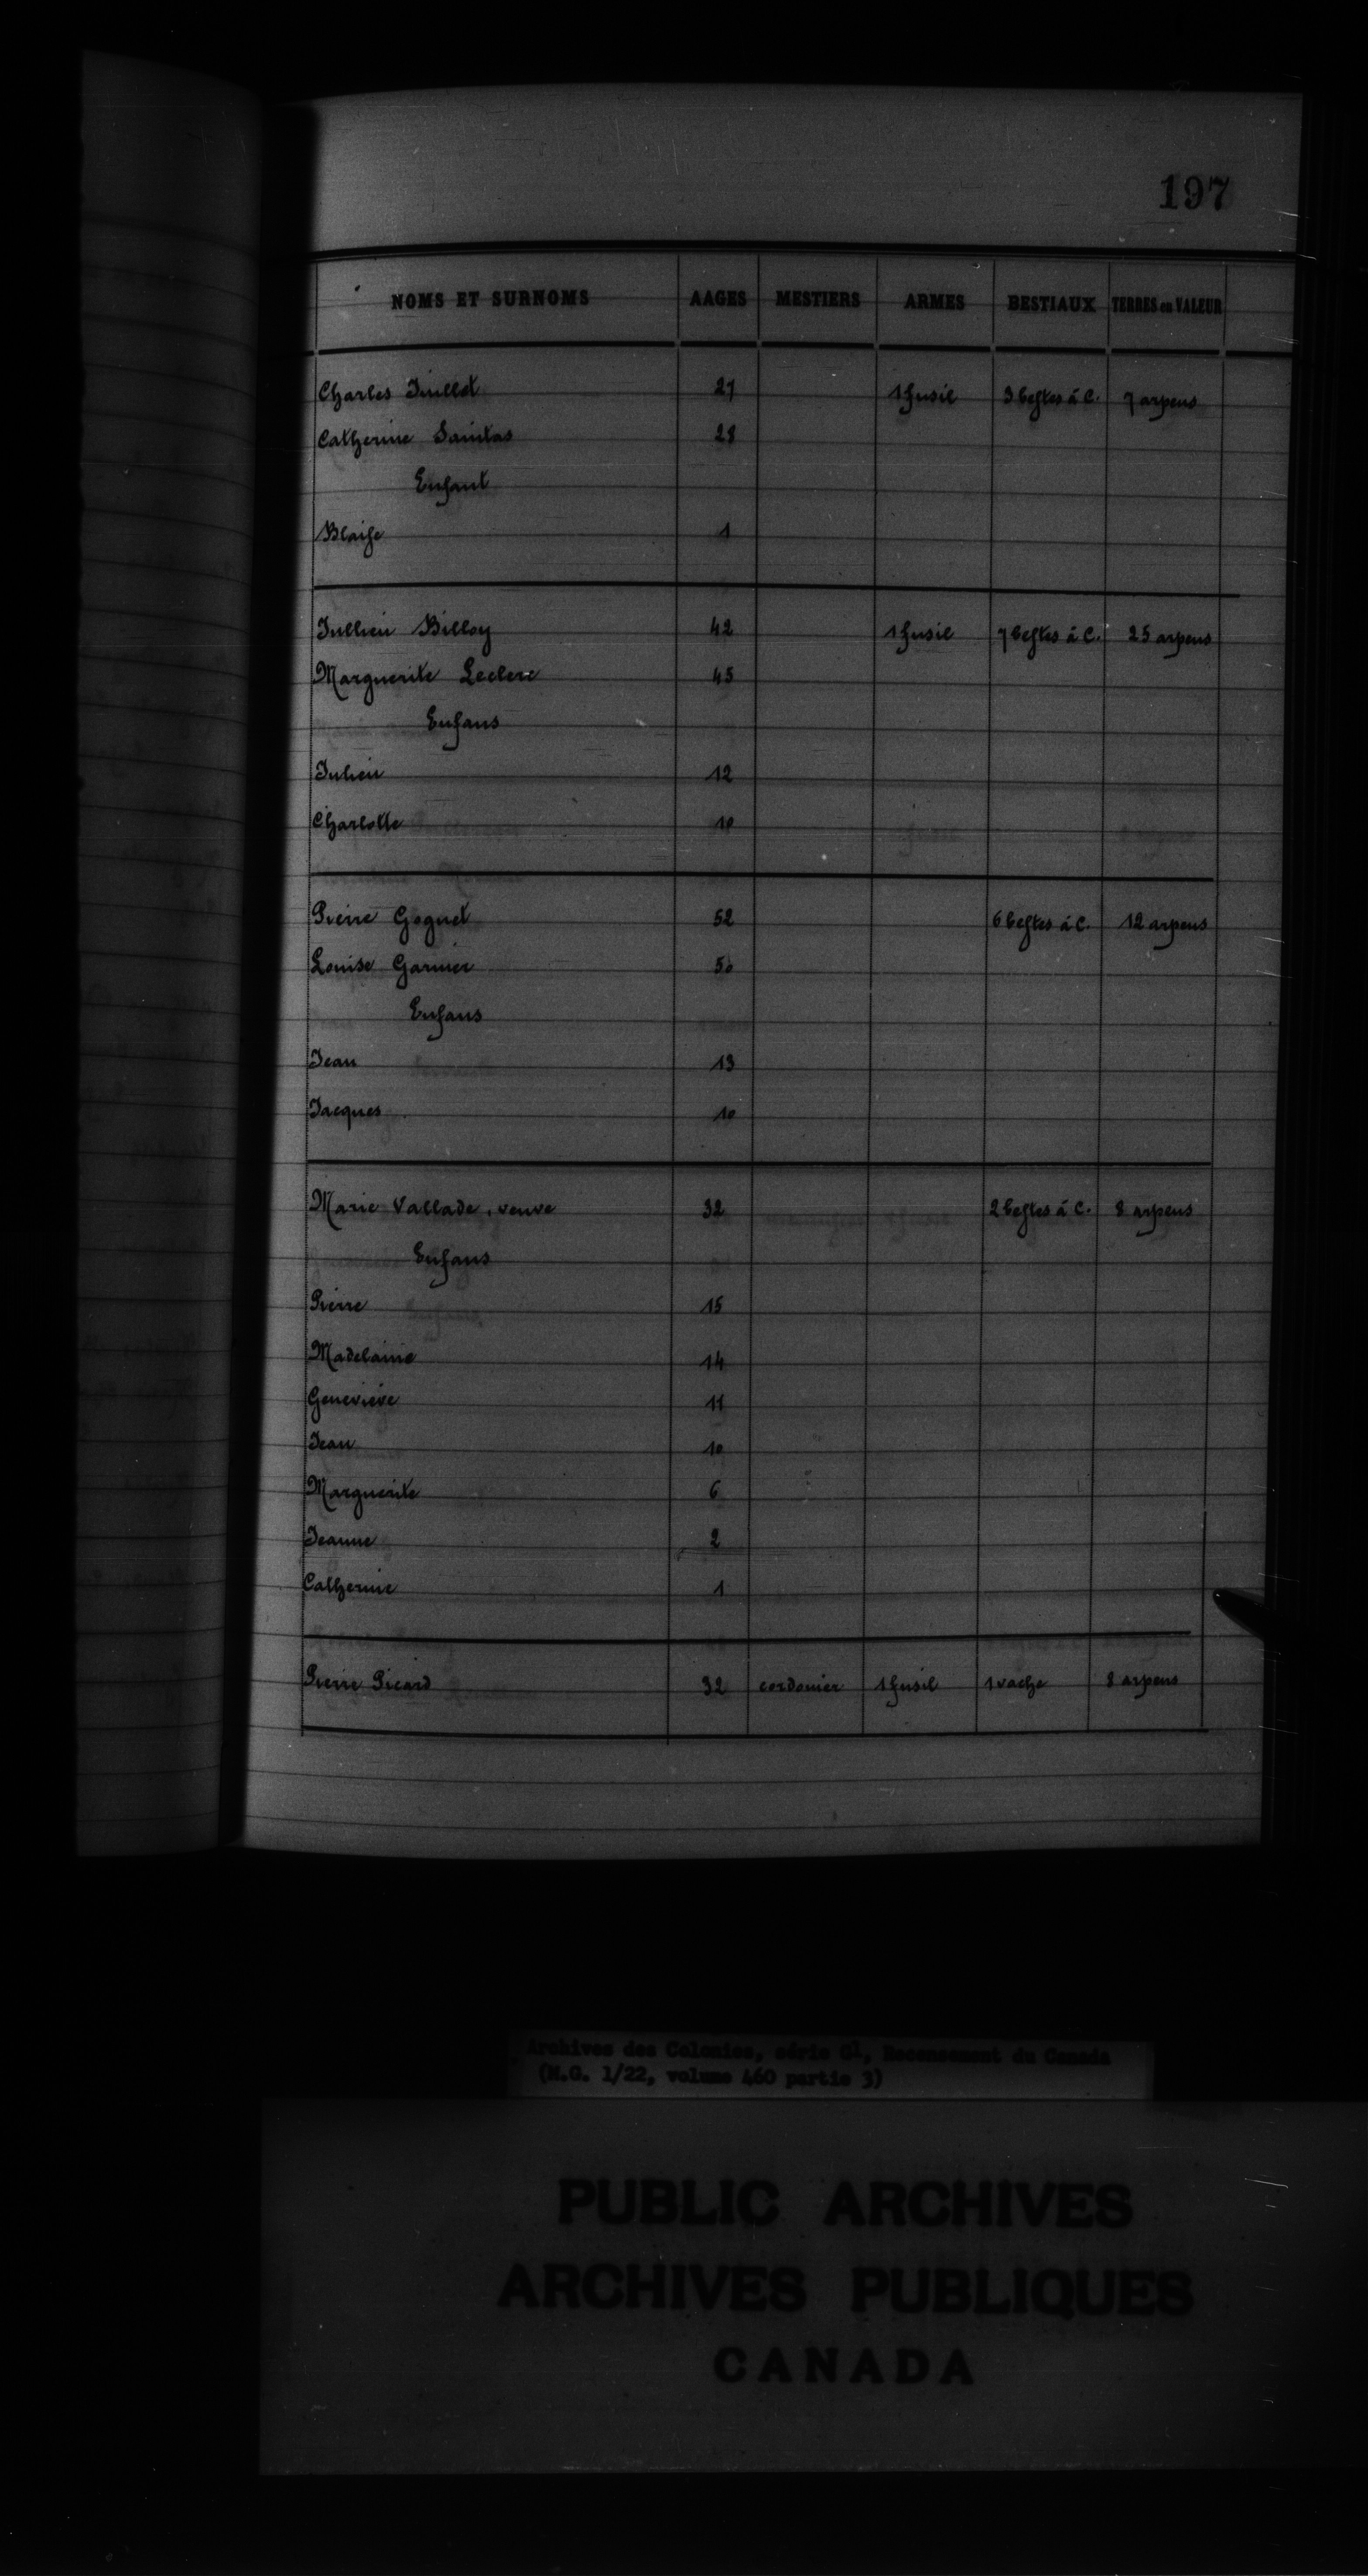 197
NOMS ET SURNOMS AAGES MESTIERS ARMES BESTIAUX TERRES en VALEUR
Charles Juillet 27 1 fusil 3 bestes à C. 7 arpens
Catherine Saintas 28
Enfant
Blaise 1
Jullien Billoy 42 1 fusil 7 bestes à C. 25 arpens
Marguerite Leclerc 45
Enfans
Julien 12
Charlotte 10
Pierre Goguet 52 6 bestes à C. 12 arpens
Louise Garnier 50
Enfans
Jean 13
Jacques 10
Marie Vallade, veuve 32 2 bestes à C. 8 arpens
Enfans
Pierre 15
Madelaine 14
Geneviève 11
Jean 10
Marguerite 6
Jeanne 2
Catherine 1
Pierre Picard 32 cordonier 1 fusil 1 vache 8 arpens
Archives des Colonies, série G1, Recensement du Canada
(M.G. 1/22, volume 460 partie 3)
PUBLIC ARCHIVES
ARCHIVES PUBLIQUES
CANADA